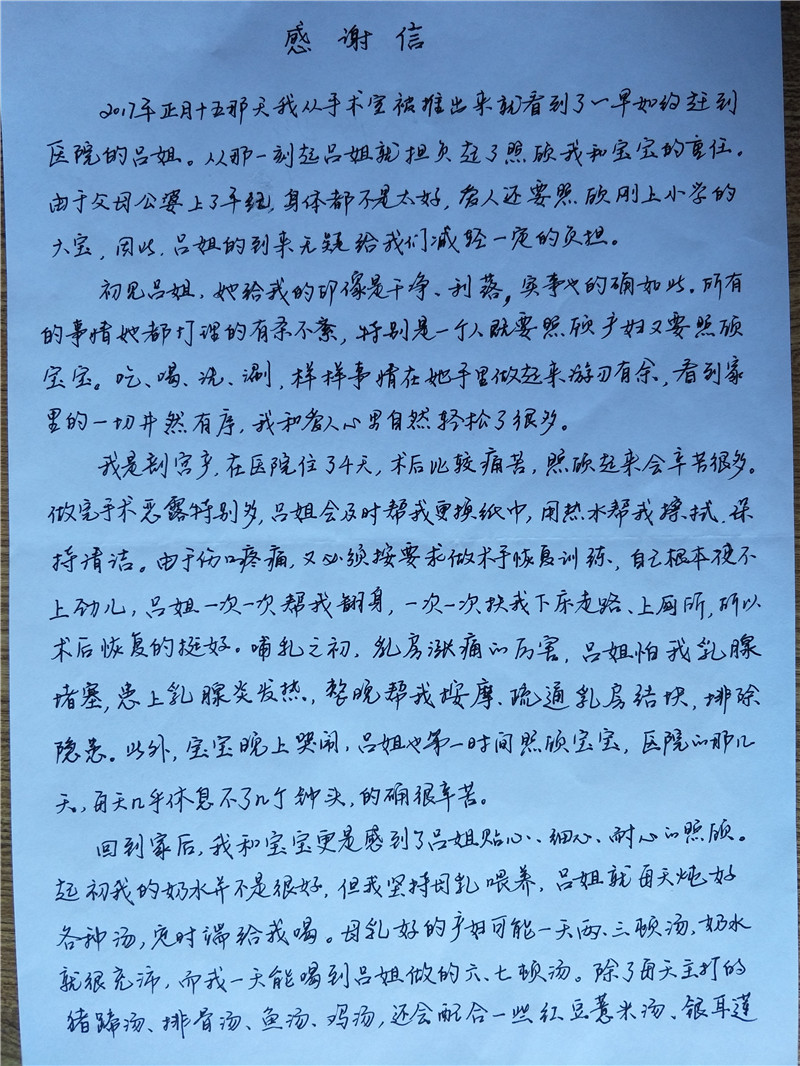 感谢信
2017年正月十五那天我从手术室被推出来就看到了一早如约赶到
医院的吕姐。从那一刻起吕姐就担负起了照顾我和宝宝的重任。
由于父母公婆上了年纪,身体都不是太好,爱人还要照顾刚上小学的
大宝,因此,吕姐的到来无疑给我们减轻一定的负担。
初见吕姐,她给我的印像是干净、利落,实事也的确如此。所有
的事情她都打理的有条不紊,特别是一个人既要照顾产妇又要照顾
宝宝。吃、喝、洗、涮,样样事情在她手里做起来游刃有余,看到家
里的一切井然有序,我和爱人心里自然轻松了很多。
我是剖宫产,在医院住了4天,术后比较痛苦,照顾起来会辛苦很多。
做完手术恶露特别多,吕姐会及时帮我更换纸巾,用热水帮我擦拭,保
持清洁。由于伤口疼痛,又必须按要求做术后恢复训练,自己根本使不
上劲儿,吕姐一次一次帮我翻身,一次一次扶我下床走路、上厕所,所以
术后恢复的挺好。哺乳之初,乳房涨痛的厉害,吕姐怕我乳腺
堵塞,患上乳腺炎发热,整晚帮我按摩、疏通乳房结块,排除
隐患。此外,宝宝晚上哭闹,吕姐也第一时间照顾宝宝,医院的那几
天,每天几乎休息不了几个钟头,的确很辛苦。
回到家后,我和宝宝更是感到了吕姐贴心、细心、耐心的照顾。
起初我的奶水并不是很好,但我坚持母乳喂养,吕姐就每天炖好
各种汤,定时端给我喝。母乳好的产妇可能一天两、三顿汤,奶水
就很充沛,而我一天能喝到吕姐做的六、七顿汤。除了每天主打的
猪蹄汤、排骨汤、鱼汤、鸡汤,还会配合一些红豆薏米汤、银耳莲